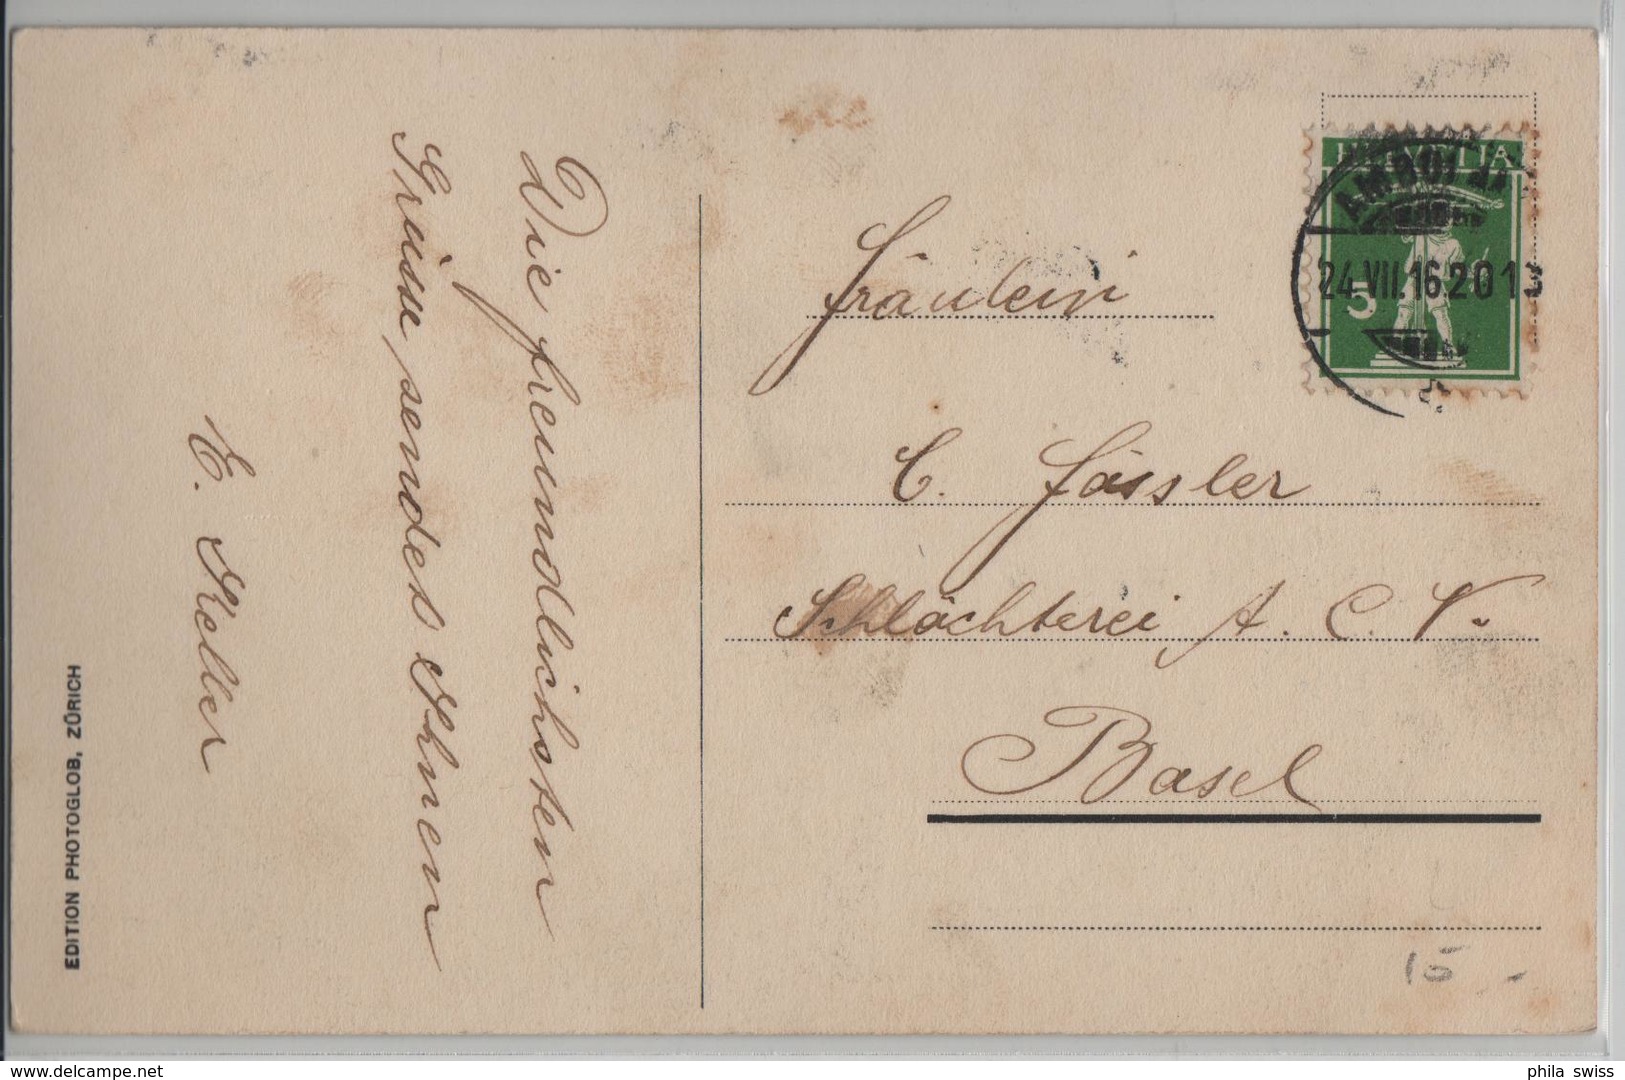 Die freundlichsten
Grüsse, sendes Ihnen
E. Keller
EDITION PHOTOGLOB, ZÜRICH
HELVETIA
5
24.VII.16.20
Fräulein
C. Fässler
Schlächterei A. C. V.
Basel
15 -
delcampe.net
phila_swiss